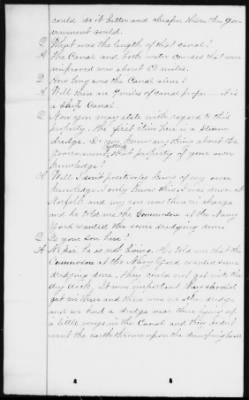 could do it better and cheaper than the Gov-
ernment could.
Q What was the length of that canal?
A The Canal and both water courses that was
improved was about 30 miles.
Q How long was the Canal alone?
A Well there is 7 miles of canal proper it is
a Canal.
Q Now you may state with regard to this
property. The first item here is a Steam
dredge. Do you know any thing about the
Government getting that property of your own
knowledge?
A Well I don't positively know of my own
knowledge. I only know this I was down at
Norfolk and my son was there in charge
and he told me the Commodore at the Navy
Yard wanted the same dredging done.
Q Is your son here?
A No he is not living. He told me that the
Commodore at the Navy Yard wanted some
dredging done, they could not get into the
dry dock, it was important they should
get in there and there was no other dredge
and we had a dredge over there lying up
a little ways in the Canal and they didn't
want the earth thrown upon the